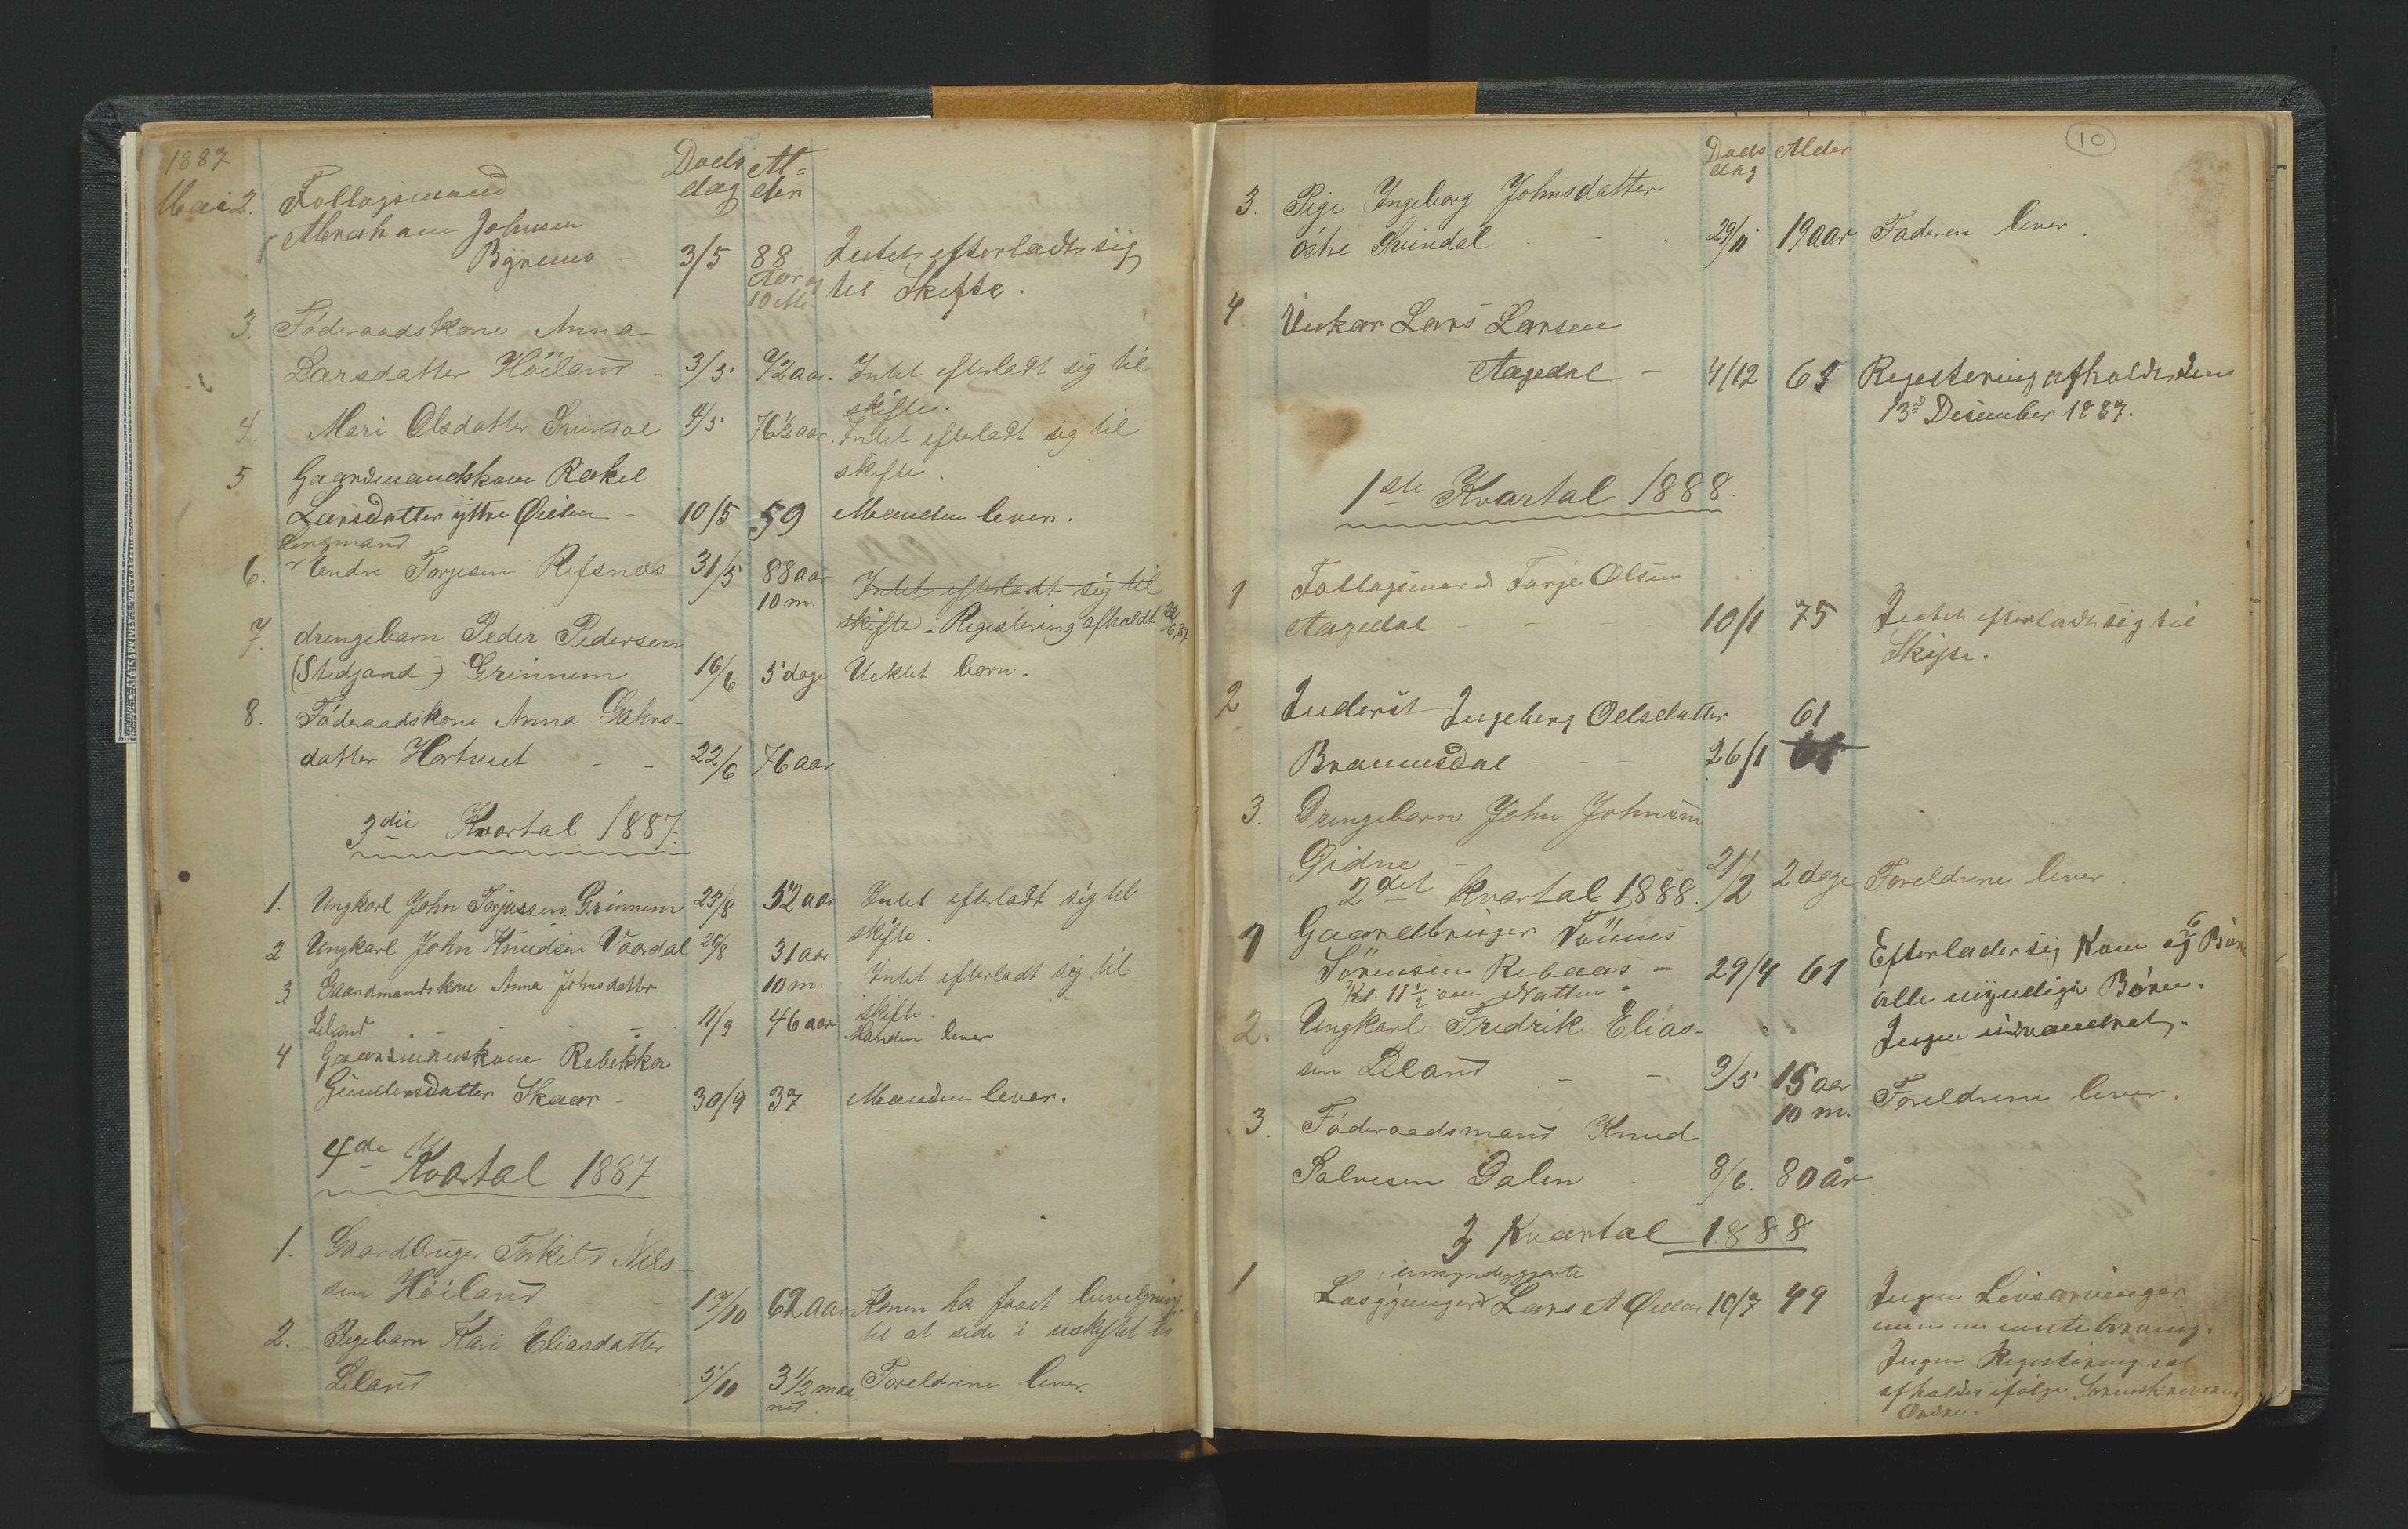 1887
Døds Al=
dag der
Mai 2. Follagsmand
Abraham Johnsen
Bgremo - 3/5 88 Intet efterladt sig
Aar og til Skifte.
10 Md
3. Föderaadskone Anna
Larsdatter Höiland - 3/5 72 aar. Intet efterladt sig til
skifte.
4. Mari Olsdatter Svindal 4/5 76½ aar. Intet efterladt sig til
skifte.
5 Gaardmandskone Rakel
Larsdatter yttre Øielen - 10/5 59 Manden lever.
Lensmand
6. Endre Torjesen Refsnæs 31/5 88 aar Intet efterladt sig til
10 m. skifte - Registering afholdt 22/6.87
7. drengebarn Peder Pedersen
(Stedjand) Grinnem 16/6 5 dage Uektet barn.
8. Föderaadskone Anna Gahrs-
datter Hortvet - - 22/6 76 aar
3die Kvartal 1887.
1. Ungkarl John Torjussen Grinnem 25/8 52 aar Intet efterladt sig til
skifte.
2 Ungkarl John Knudsen Vaardal 26/8 31 aar
10 m. Intet efterladt sig til
skifte.
3. Gaardmandskone Anna Johnsdatter
Leland - - - 11/9 46 aar Manden lever
4 Gaardmanskone Rebekka
Gundersdatter Skaar - 30/9 37 Manden lever.
4de Kvartal 1887
1. Gaardbruger Torkild Nils-
sen Höiland - - 17/10 62 aar Konen har faaet bevilgning
til at side i uskiftet bo
2. Pigebarn Kari Eliasdatter
Leland 5/10 3½ maa- Foreldrene lever.
ned
10
Døds Alder
dag
3. Pige Ingeborg Johnsdatter
östre Svindal - 29/11 19 aar Faderen lever.
4 Unkar Lars Larsen
Aagedal - 4/12 61 Registering afholdt den
13de Desember 1887.
1ste Kvartal 1888.
1 Follagsmand Torje Olsen
Aagedal - - 10/1 75 Intet efterladt sig til
Skifte.
2 Inderst Ingeborg Oelsdatter 61
Braumsdal - - - 26/1
3. Drengebarn John Johnsen
Gidne - 21/2 2 dage Foreldrene lever.
2det Kvartal 1888.
1 Gaardbruger Tönnes
Sörensen Rebaas - 29/4 61 Efterlader sig Kone og 6 Börn
Kl. 11½ om Natten. alle myndige Börn.
Ingen udvandret.
2. Ungkarl Fredrik Elias-
sen Leland - - 9/5 15 aar
10 m. Foreldrene lever.
3. Föderaadsmand Knud
Salvesen Dalen - 8/6. 80 år.
3 Kvartal 1888
umyndiggjorte
1 Losgjænger Lars A. Øielen 10/7 49 Ingen Livsarvinger
Ingen Registering
afholdes ifølge Sorenskriveren
Ordre.